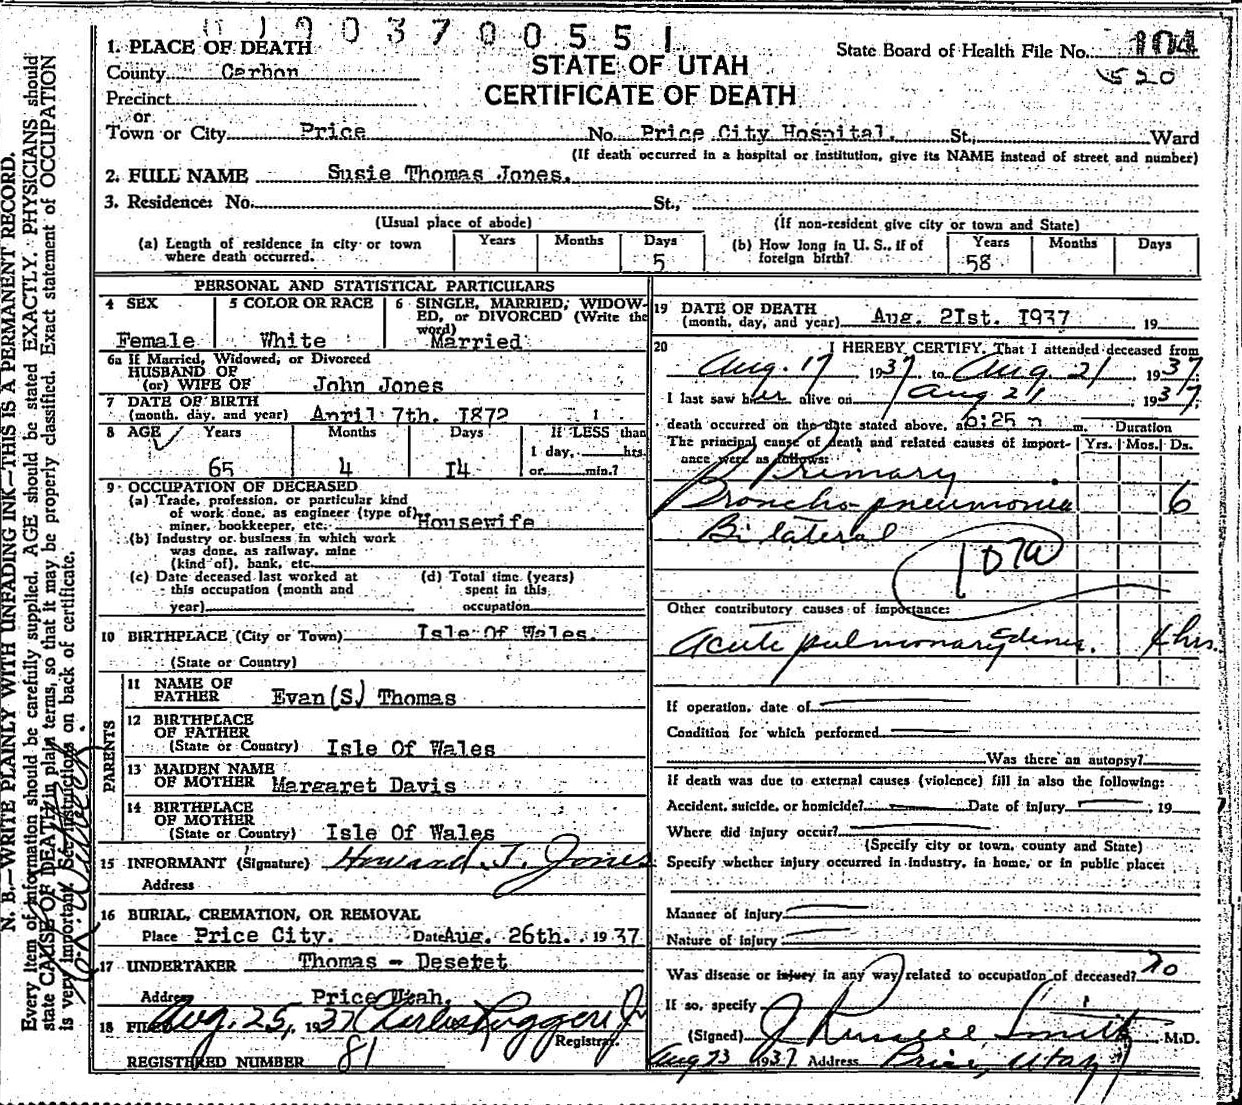 1. PLACE OF DEATH
003700551
State Board of Health File No. 104
County Carbon
STATE OF UTAH
520
Precinct
CERTIFICATE OF DEATH
or
Town or City Price No. Price City Hospital. St., Ward
(If death occurred in a hospital or institution, give its NAME instead of street and number)
2. FULL NAME Susie Thomas Jones.
3. Residence: No. St.,
(Usual place of abode) (If non-resident give city or town and State)
(a) Length of residence in city or town where death occurred. Years Months Days 5
(b) How long in U. S., if of foreign birth? Years 58 Months Days
PERSONAL AND STATISTICAL PARTICULARS
4 SEX Female
5 COLOR OR RACE White
6 SINGLE, MARRIED, WIDOWED, or DIVORCED (Write the word) Married
6a If Married, Widowed, or Divorced
HUSBAND OF
(or) WIFE OF John Jones
7 DATE OF BIRTH
(month, day, and year) April 7th. 1872
8 AGE Years 65 Months 4 Days I4 If LESS than 1 day, hrs. or min.?
9 OCCUPATION OF DECEASED
(a) Trade, profession, or particular kind
of work done, as engineer (type of),
miner, bookkeeper, etc. Housewife
(b) Industry or business in which work
was done, as railway, mine
(kind of), bank, etc.
(c) Date deceased last worked at
this occupation (month and
year)
(d) Total time (years)
spent in this
occupation
10 BIRTHPLACE (City or Town) Isle Of Wales.
(State or Country)
PARENTS
11 NAME OF
FATHER Evan (S) Thomas
12 BIRTHPLACE
OF FATHER
(State or Country) Isle Of Wales
13 MAIDEN NAME
OF MOTHER Margaret Davis
14 BIRTHPLACE
OF MOTHER
(State or Country) Isle Of Wales
15 INFORMANT (Signature) Howard T. Jones
Address
16 BURIAL, CREMATION, OR REMOVAL
Place Price City. Date Aug. 26th. 1937
17 UNDERTAKER Thomas - Deseret
Address Price Utah.
18 FILED Aug. 25, 1937 Charles Ruggeri Jr
Registrar.
REGISTERED NUMBER 81
19 DATE OF DEATH
(month, day, and year) Aug. 2Ist. I937 19
20 I HEREBY CERTIFY, That I attended deceased from
Aug. 17 1937 to Aug. 21, 1937
I last saw her alive on Aug 21, 1937,
death occurred on the date stated above, at 6:25 p m. Duration
The principal cause of death and related causes of importance were as follows: Yrs. Mos. Ds.
Primary
Broncho-pneumonia 6
Bilateral
107a
Other contributory causes of importance:
Acute pulmonary Edema. 4 hrs.
If operation, date of
Condition for which performed
Was there an autopsy?
If death was due to external causes (violence) fill in also the following:
Accident, suicide, or homicide? Date of injury , 19
Where did injury occur?
(Specify city or town, county and State)
Specify whether injury occurred in industry, in home, or in public place:
Manner of injury
Nature of injury
Was disease or injury in any way related to occupation of deceased? No
If so, specify
(Signed) J Russell Smith M.D.
Aug 23 1937 Address Price, Utah
N. B.—WRITE PLAINLY WITH UNFADING INK—THIS IS A PERMANENT RECORD.
Every item of information should be carefully supplied. AGE should be stated EXACTLY. PHYSICIANS should
state CAUSE OF DEATH in plain terms, so that it may be properly classified. Exact statement of OCCUPATION
is very important. See instructions on back of certificate.